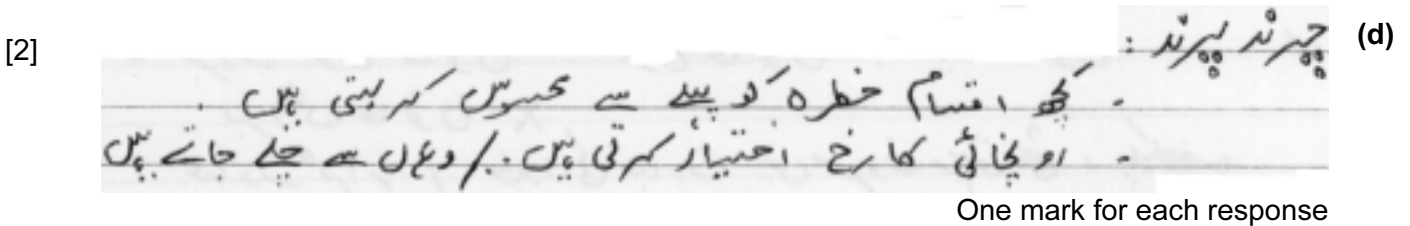 (d) چرند پرند :
[2]
- کچھ اقسام خطرہ کو پہلے سے محسوس کر لیتی ہیں .
- اونچائی کا رخ اختیار کرتی ہیں . / وہاں سے چلے جاتے ہیں
One mark for each response